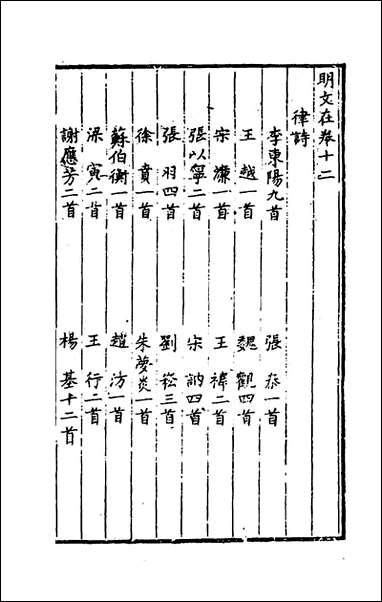 明文在卷十二
律詩
李東陽九首　張泰一首
王越一首　魏觀四首
宋濂一首　王褘二首
張以寧二首　宋訥四首
張羽四首　劉崧三首
徐賁一首　朱夢炎一首
蘇伯衡一首　趙汸一首
梁寅二首　王行二首
謝應芳二首　楊基十二首